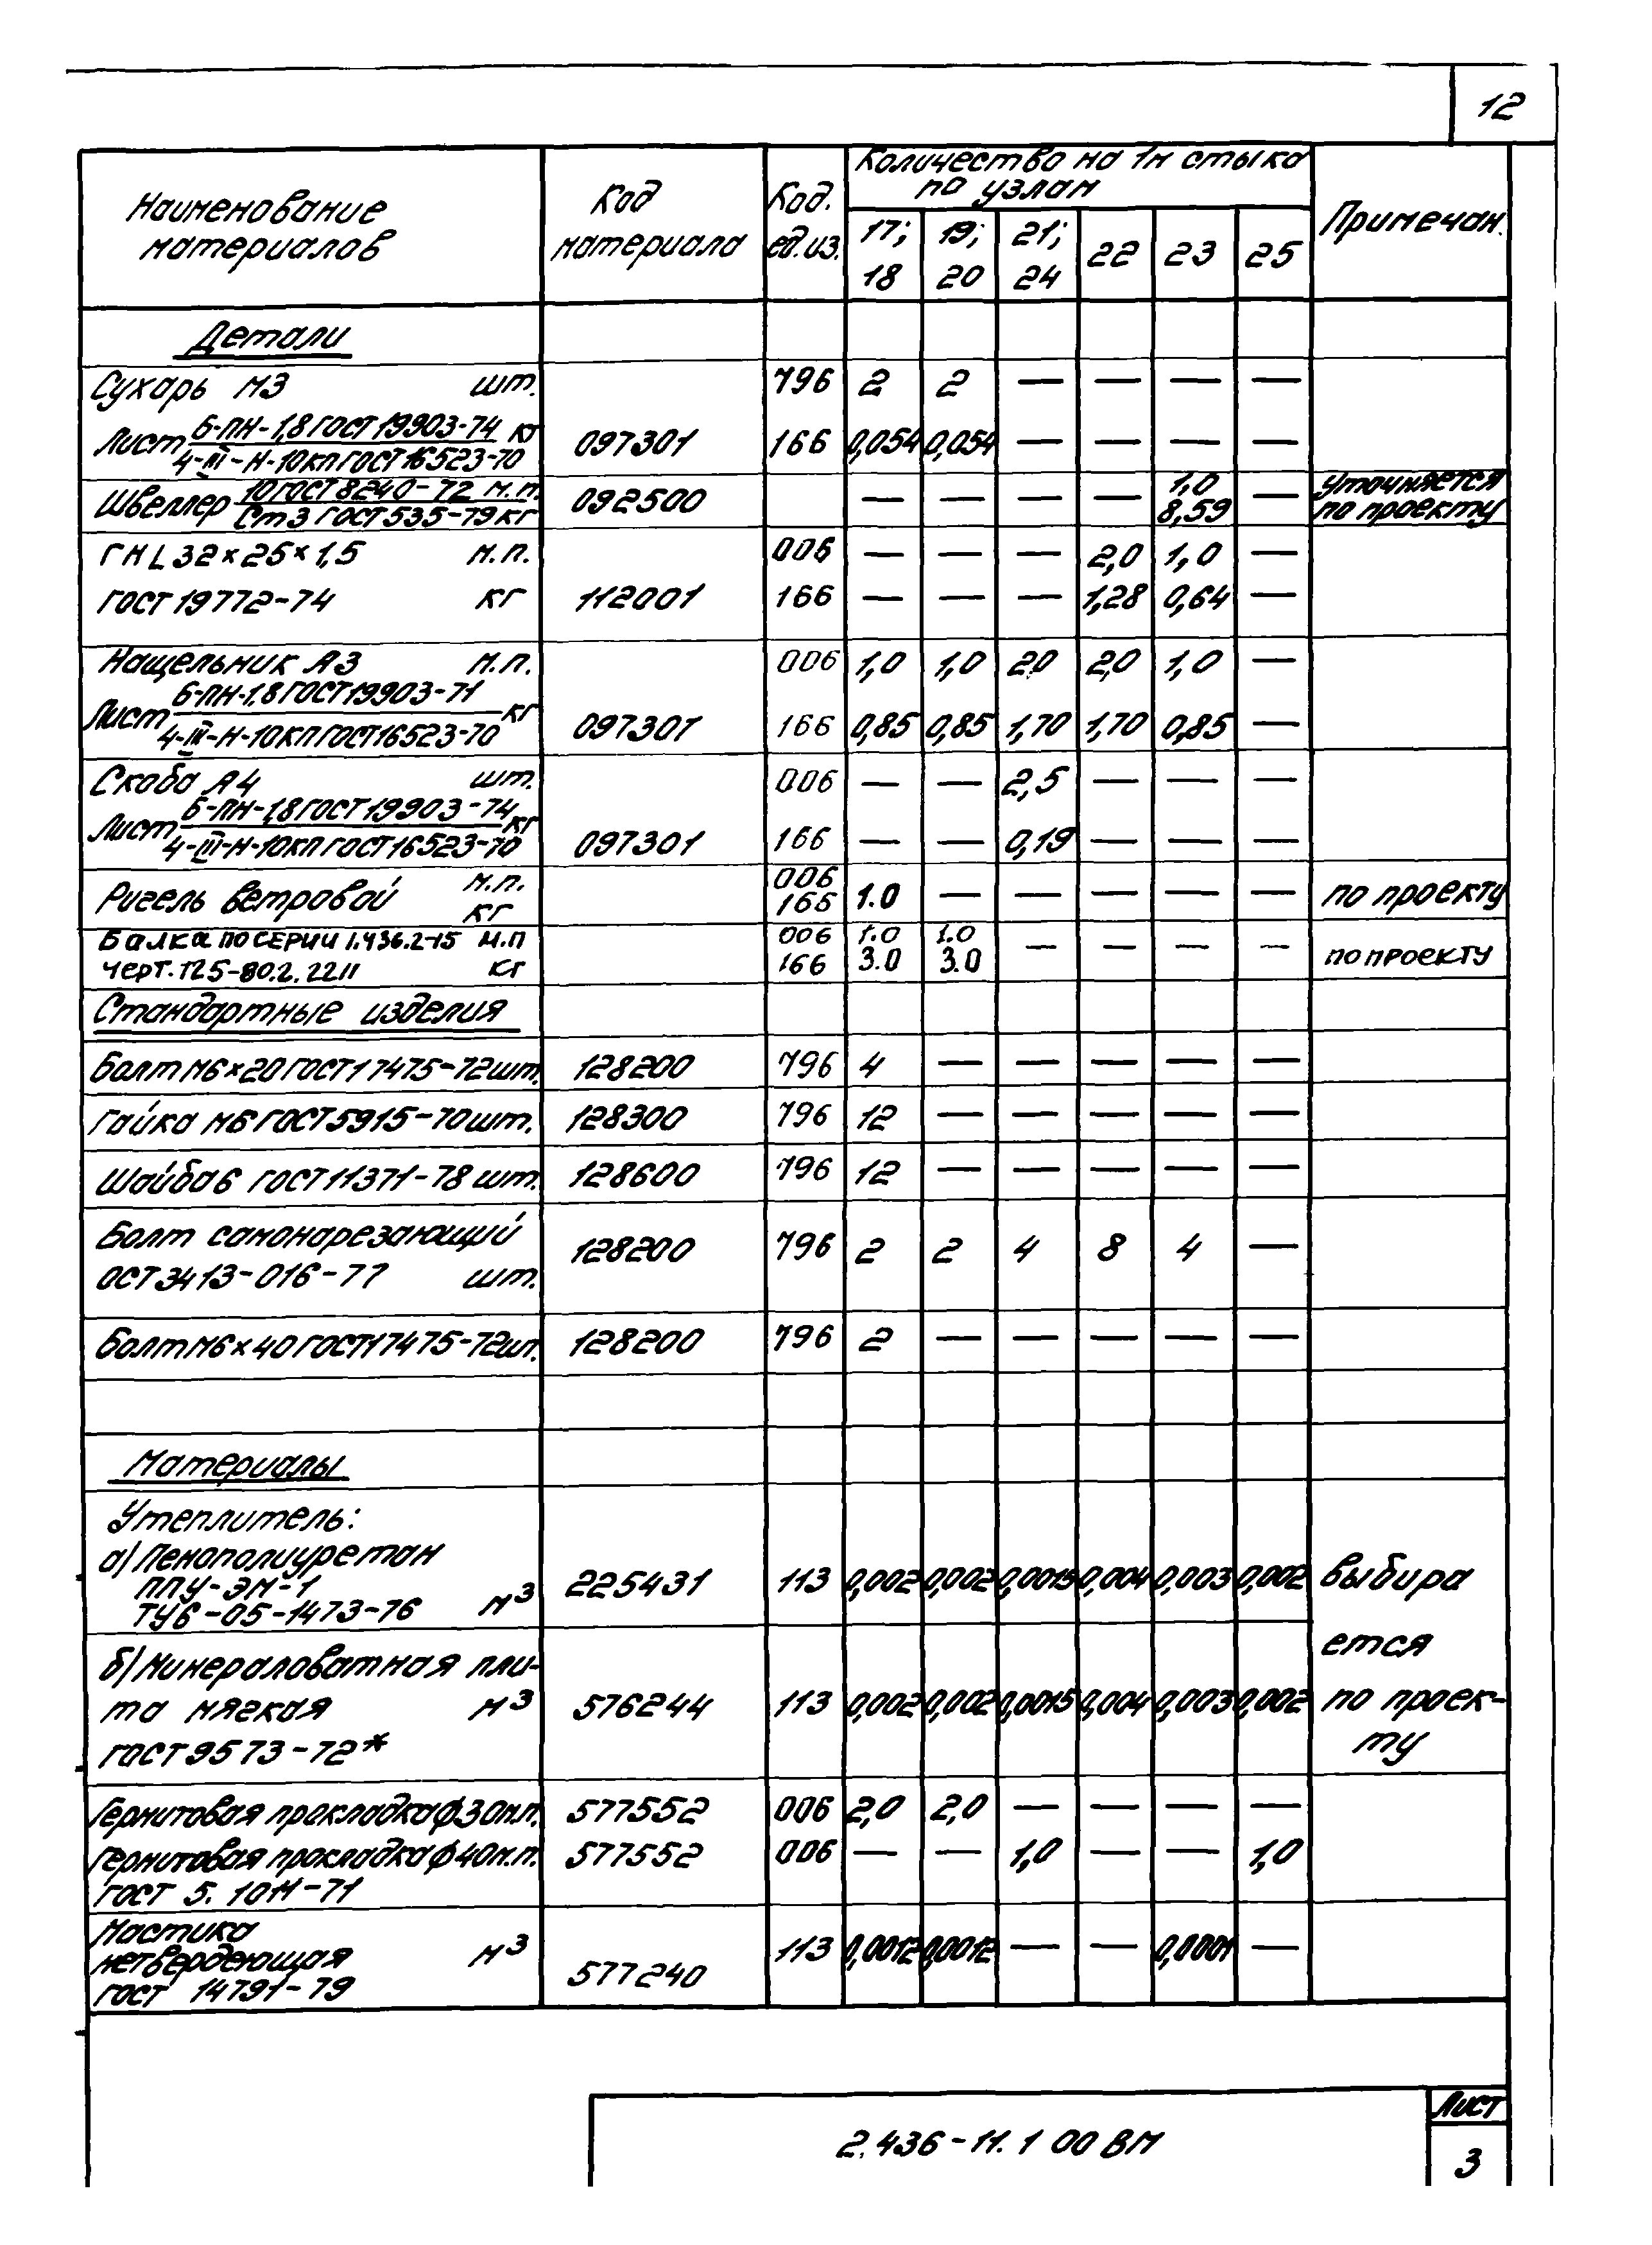 12
Наименование материалов | Код материала | Код. ед.из. | Количество на 1м стыка по узлам | Примечан.
17; 18 | 19; 20 | 21; 24 | 22 | 23 | 25
Детали
Сухарь М3 шт. 796 2 2 — — — —
Лист Б-ПН-1,8 ГОСТ 19903-74 кг
4-III-Н-10кп ГОСТ 16523-70 097301 166 0,054 0,054 — — — —
Швеллер 10 ГОСТ 8240-72 м.п. 1,0 уточняется
Ст3 ГОСТ 535-79 кг 092500 — — — — 8,59 — по проекту
ГН L 32×25×1,5 м.п. 006 — — — 2,0 1,0 —
ГОСТ 19772-74 кг 112001 166 — — — 1,28 0,64 —
Нащельник А3 м.п. 006 1,0 1,0 2,0 2,0 1,0 —
Лист Б-ПН-1,8 ГОСТ 19903-71 кг
4-III-Н-10кп ГОСТ 16523-70 097301 166 0,85 0,85 1,70 1,70 0,85 —
Скоба А4 шт. 006 — — 2,5 — — —
Лист Б-ПН-1,8 ГОСТ 19903-74 кг
4-III-Н-10кп ГОСТ 16523-70 097301 166 — — 0,19 — — —
Ригель ветровой м.п. 006 1.0 — — — — — по проекту
кг 166
Балка по серии 1.436.2-15 м.п 006 1.0 1.0 — — — — по проекту
черт. Т25-80.2.2211 кг 166 3.0 3.0
Стандартные изделия
Болт М6×20 ГОСТ 17475-72 шт. 128200 796 4 — — — — —
Гайка М6 ГОСТ 5915-70 шт. 128300 796 12 — — — — —
Шайба 6 ГОСТ 11371-78 шт. 128600 796 12 — — — — —
Болт самонарезающий 128200 796 2 2 4 8 4 —
ОСТ 34 13-016-77 шт.
Болт М6×40 ГОСТ 17475-72 шт. 128200 796 2 — — — — —
Материалы
Утеплитель:
а) Пенополиуретан
ППУ-ЭМ-1 225431 113 0,002 0,002 0,0015 0,004 0,003 0,002 выбира
ТУ6-05-1473-76 м³
ется
б) Минераловатная пли-
та мягкая м³ 576244 113 0,002 0,002 0,0015 0,004 0,003 0,002 по проек-
ГОСТ 9573-72* ту
Гернитовая прокладка ф30 м.п. 577552 006 2,0 2,0 — — — —
Гернитовая прокладка ф40 м.п. 577552 006 — — 1,0 — — 1,0
ГОСТ 5.1011-71
Мастика
нетвердеющая м³ 577240 113 0,0012 0,0012 — — 0,0001 —
ГОСТ 14791-79
2.436-11.1 00 ВМ
Лист
3